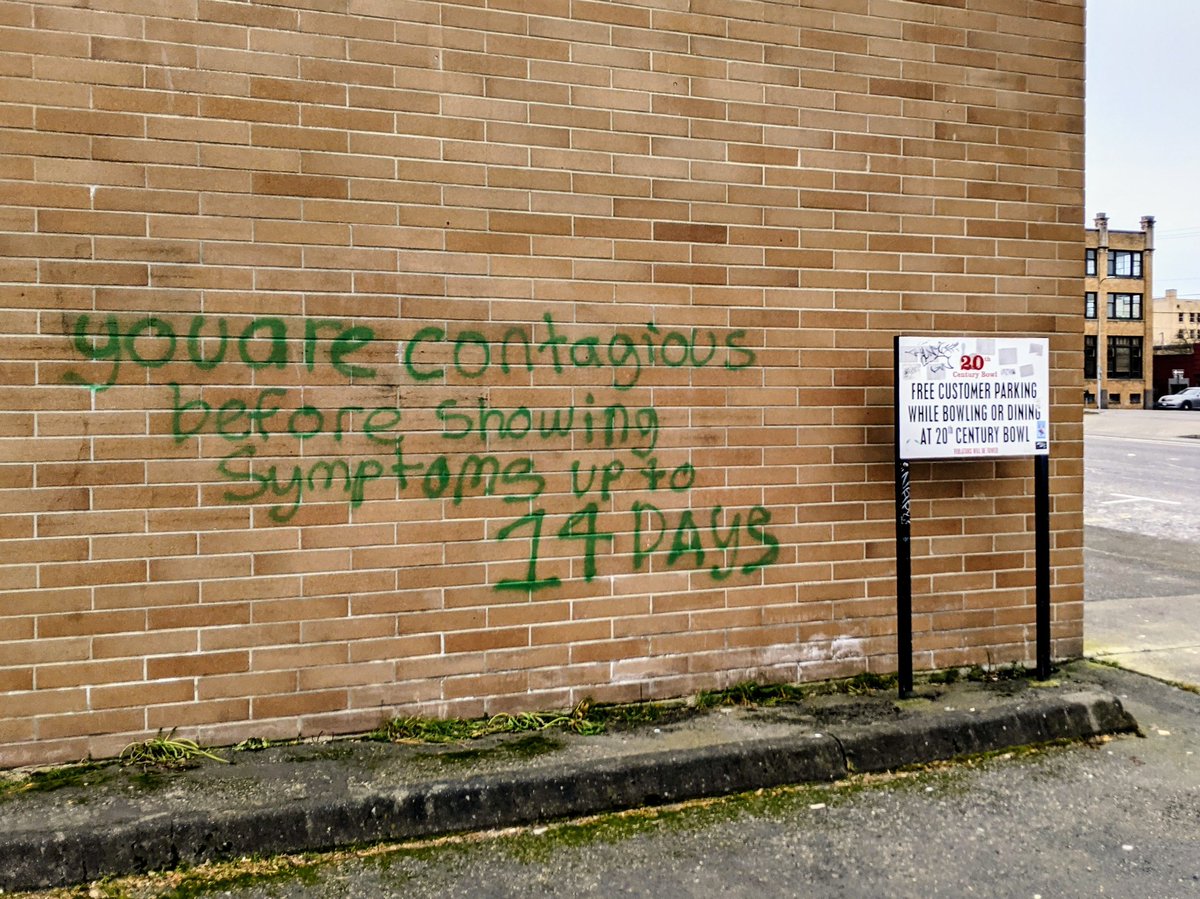 you are contagious
before showing
symptoms up to
14 DAys
20th
Century Bowl
FREE CUSTOMER PARKING
WHILE BOWLING OR DINING
AT 20th CENTURY BOWL
VIOLATORS WILL BE TOWED